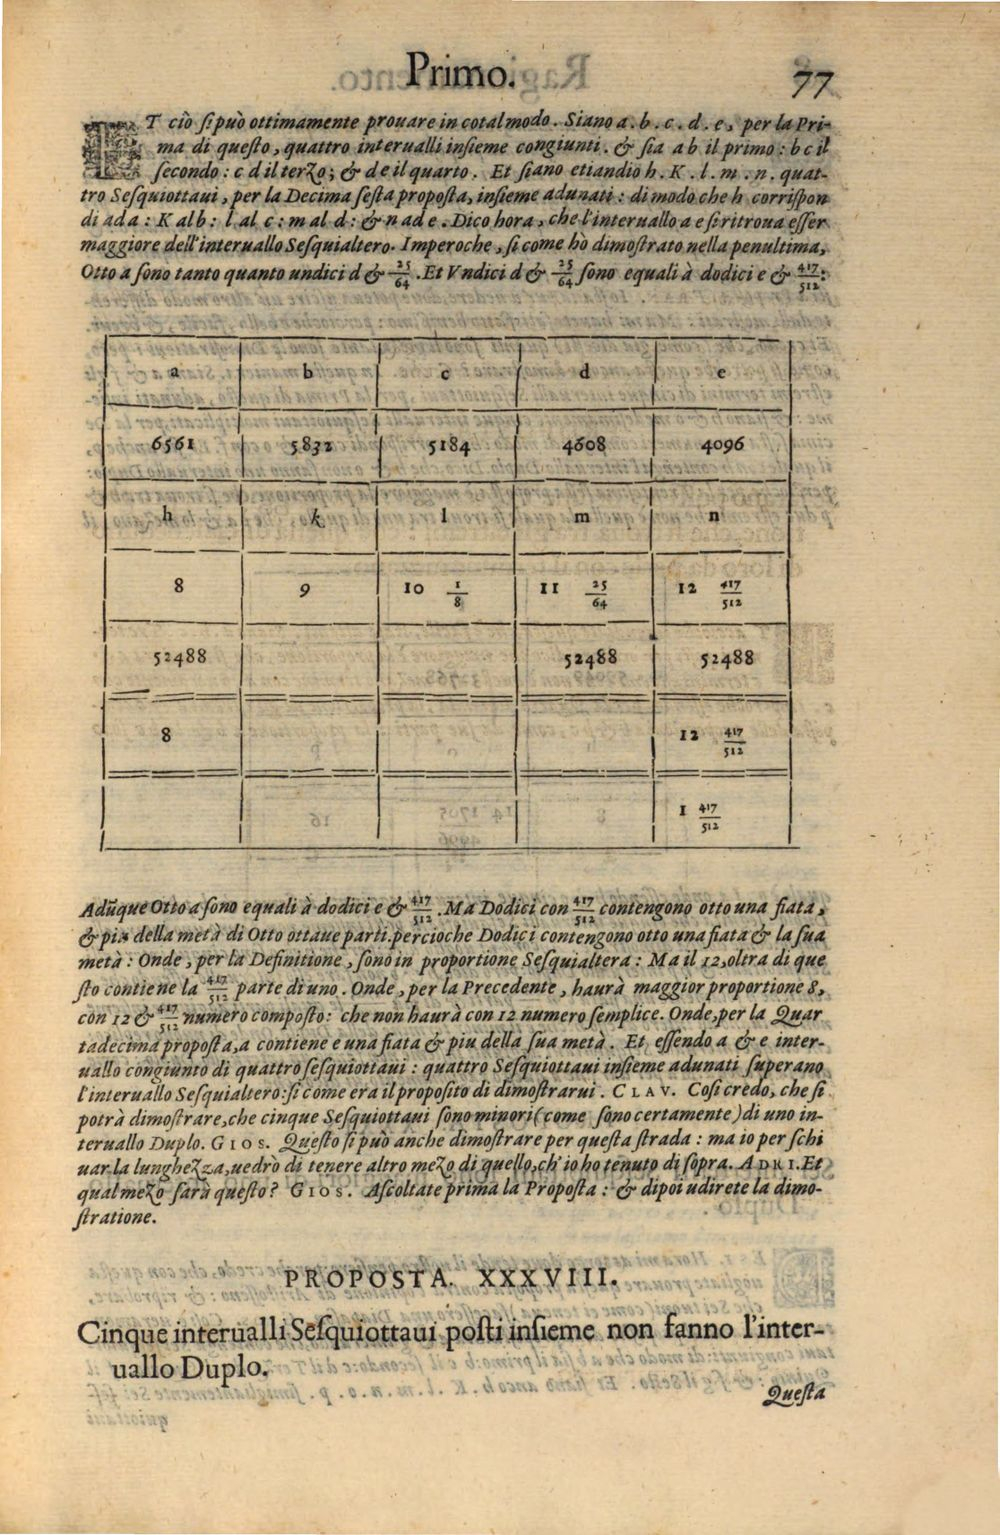 Primo. 77
ET ciò ſi può ottimamente prouare in cotal modo. Siano a. b. c. d. e, per la Pri-
ma di queſto, quattro interualli inſieme congiunti. & ſia a b il primo: b c il
ſecondo: c d il terZo; & d e il quarto. Et ſiano etiandio h. K. l. m. n. quat-
tro Seſquiottaui, per la Decima ſeſta propoſta, inſieme adunati: di modo che h corriſpon
di ad a: K al b: l al c: m al d: & n ad e. Dico hora, che l'interuallo a e ſi ritroua eſſer
maggiore dell'interuallo Seſquialtero. Imperoche, ſi come hò dimoſtrato nella penultima,
Otto a ſono tanto quanto undici d & 25/64. Et Vndici d & 25/64 ſono equali à dodici e & 417/512:
a b c d e
6561 5832 5184 4608 4096
h k l m n
8 9 10 1/8 11 25/64 12 417/512
52488 52488 52488
8 12 417/512
1 417/512
Adũque Otto a ſono equali à dodici e & 417/512. Ma Dodici con 417/512 contengono otto una fiata,
& piu della metà di Otto ottaue parti. percioche Dodici contengono otto una fiata & la ſua
metà: Onde, per la Definitione, ſono in proportione Seſquialtera: Ma il 12, oltra di que
ſto contiene la 417/512 parte di uno. Onde, per la Precedente, haurà maggior proportione 8,
con 12 & 417/512 numero compoſto: che non haurà con 12 numero ſemplice. Onde, per la Quar
tadecima propoſta, a contiene e una fiata & piu della ſua metà. Et eſſendo a & e inter-
uallo congiunto di quattro ſeſquiottaui: quattro Seſquiottaui inſieme adunati ſuperano
l'interuallo Seſquialtero: ſi come era il propoſito di dimoſtrarui. CLAV. Coſi credo, che ſi
potrà dimoſtrare, che cinque Seſquiottaui ſono minori (come ſono certamente) di uno in-
teruallo Duplo. GIOS. Queſto ſi può anche dimoſtrare per queſta ſtrada: ma io per ſchi
uar la lungheZza, uedrò di tenere altro meZo di quello, ch' io ho tenuto di ſopra. ADRI. Et
qual meZo ſarà queſto? GIOS. Aſcoltate prima la Propoſta: & dipoi udirete la dimo-
ſtratione.
PROPOSTA. XXXVIII.
Cinque interualli Seſquiottaui poſti inſieme non fanno l'inter-
uallo Duplo.
Queſta